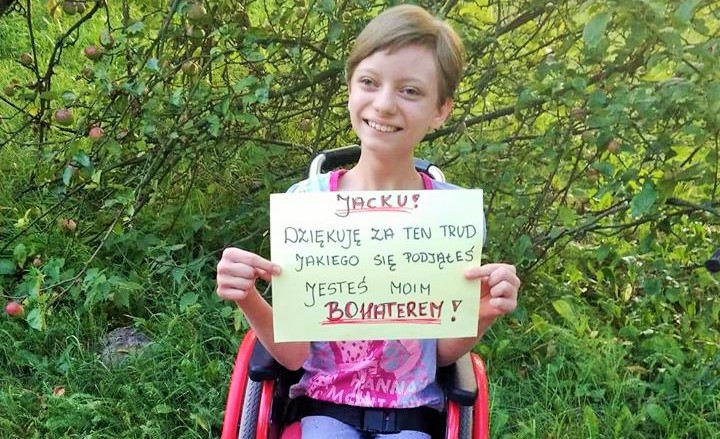 JACKU!
DZIĘKUJĘ ZA TEN TRUD
JAKIEGO SIĘ PODJĄŁEŚ
JESTEŚ MOIM
BOHATEREM!
HANNA
MONTANA